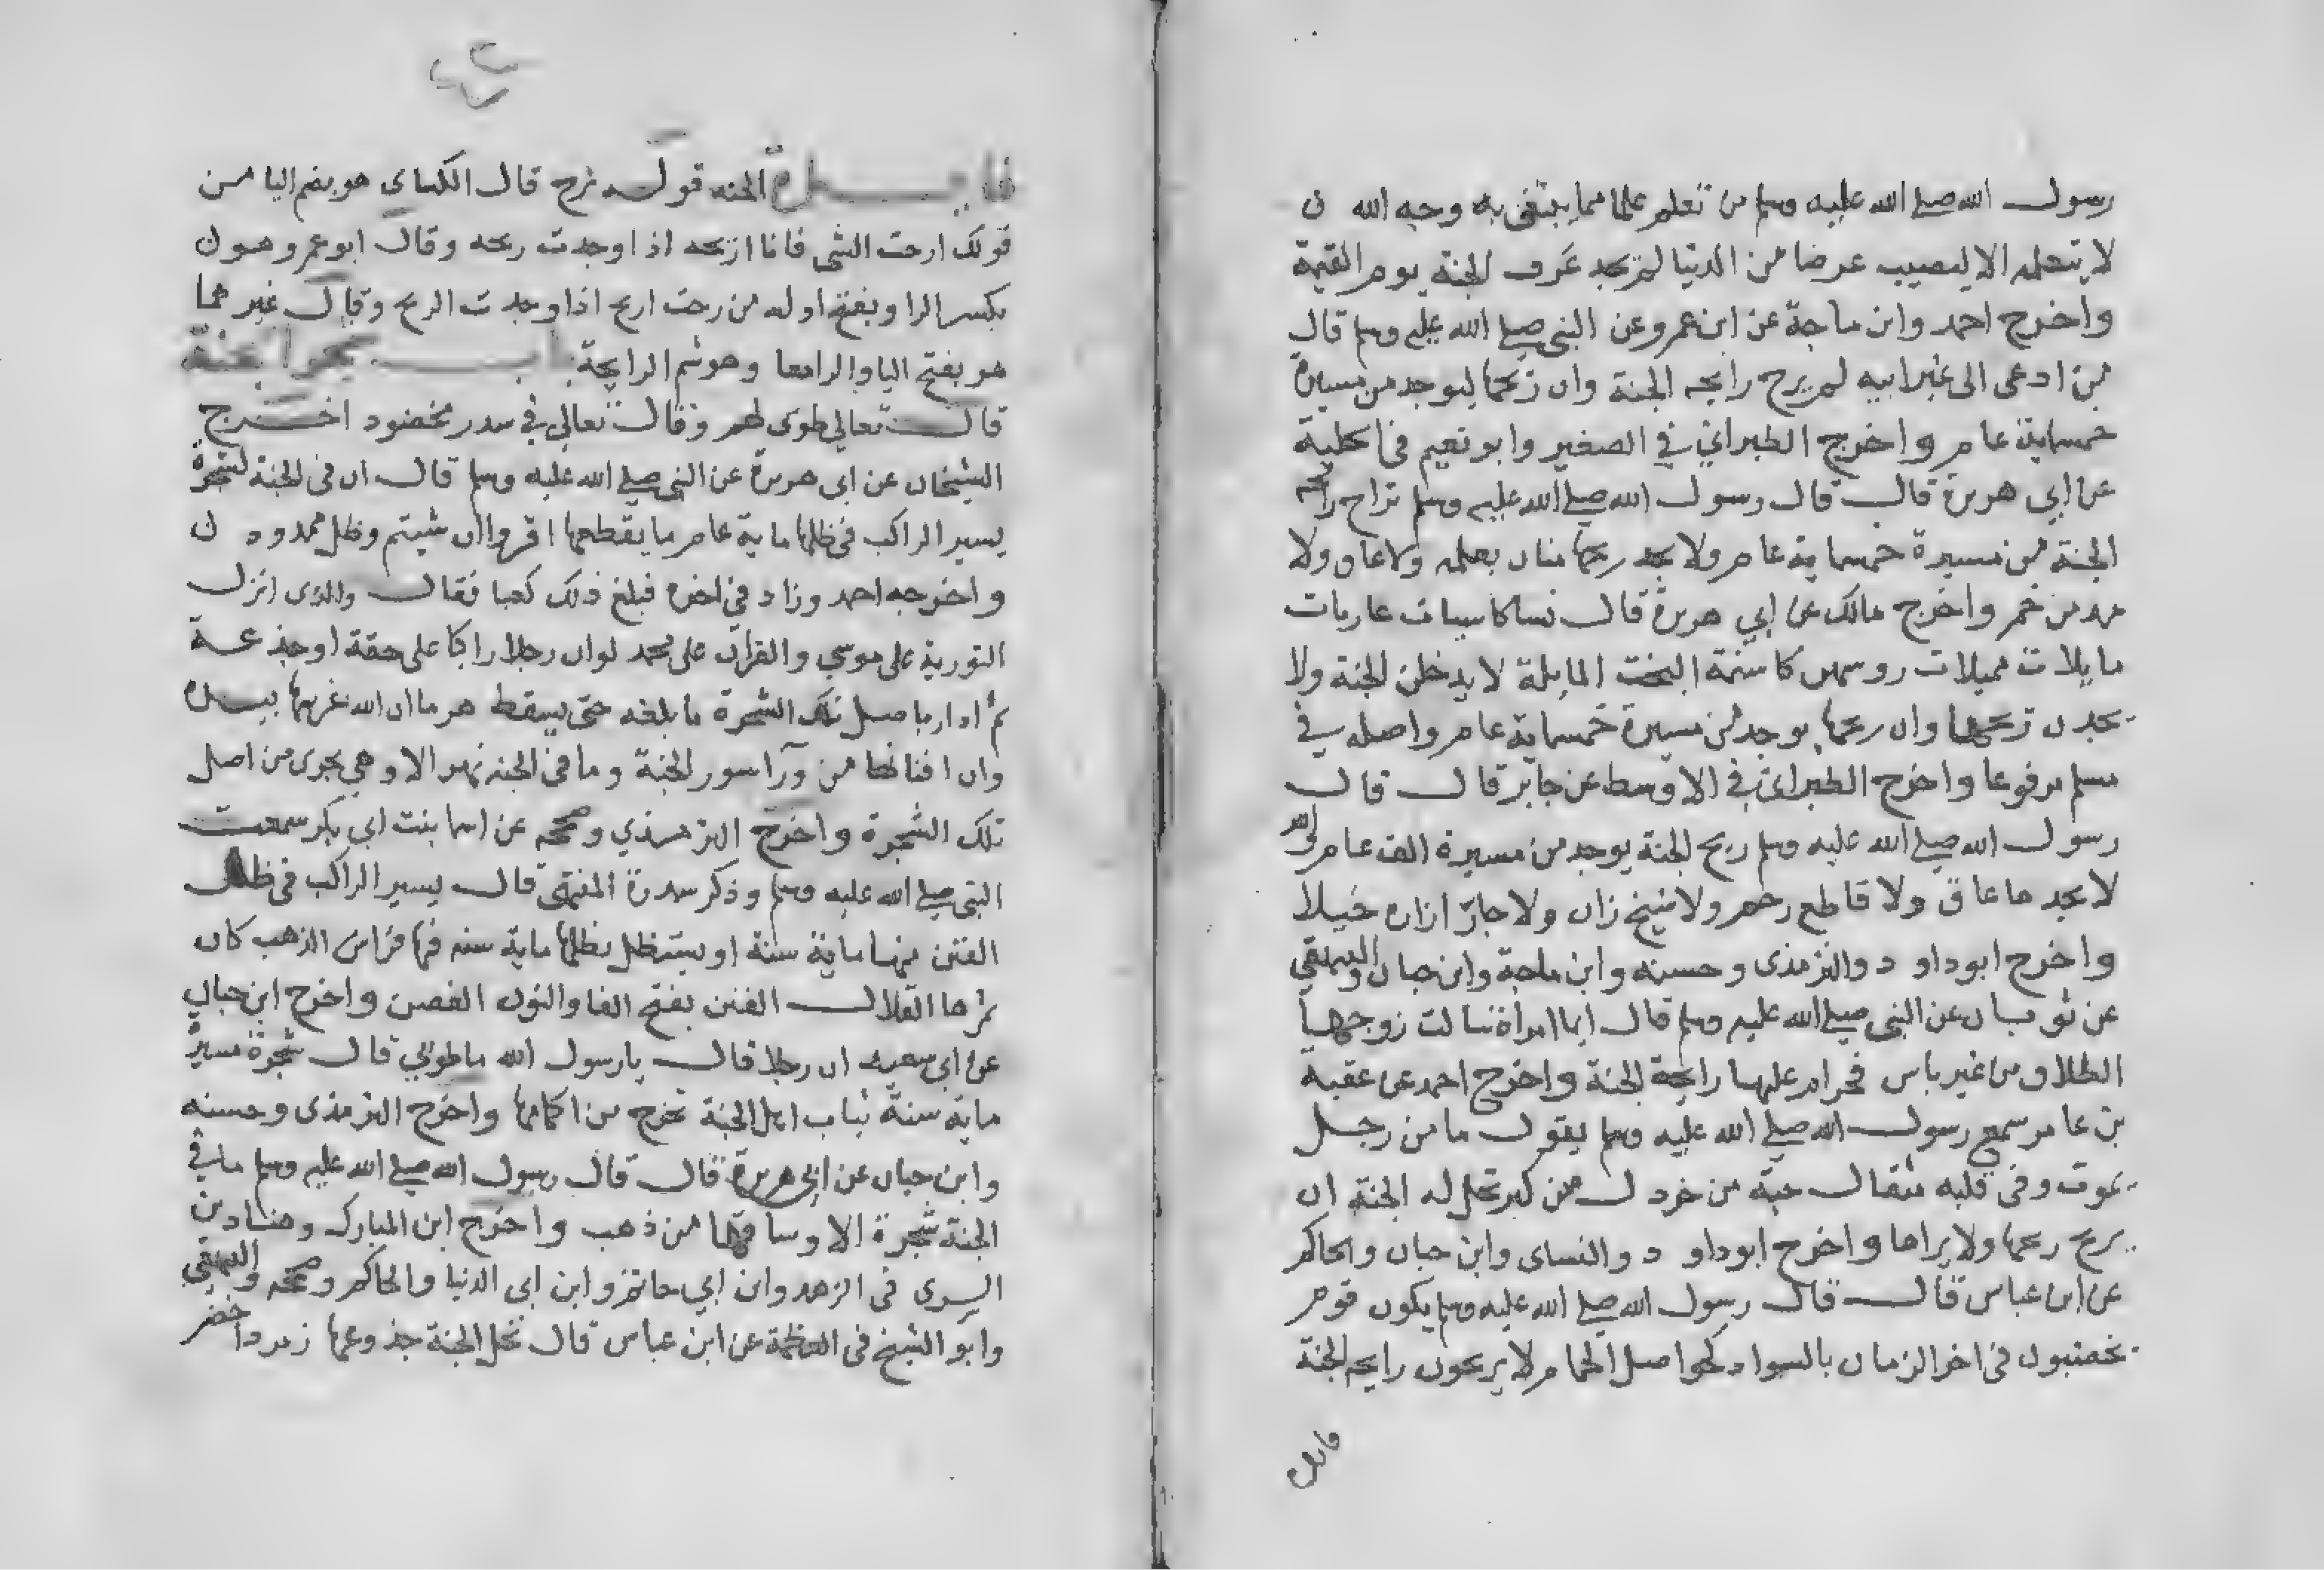 رسول الله صلى الله عليه وسلم من تعلم علما مما يبتغى به وجه الله
لا يتعلمه الا ليصيب عرضا من الدنيا لم يجد عَرف الجنة يوم القيمة
واخرج احمد وابن ماجة عن ابن عمرو عن النبي صلى الله عليه وسلم قال
من ادعى الى غير ابيه لم يرح رايحه الجنة وان ريحها ليوجد من مسيرة
خمسماية عام واخرج الطبراني في الصغير وابو نعيم في الحلية
عن ابي هريرة قال قال رسول الله صلى الله عليه وسلم تراح رايحة
الجنة من مسيرة خمسماية عام ولا يجد ريحها منان بعمله ولا عاق ولا
مدمن خمر واخرج مالك عن ابي هريرة قال نسا كاسيات عاريات
مايلات مميلات روسهن كاسنمة البخت المايلة لا يدخلن الجنة ولا
يجدن ريحها وان ريحها يوجد من مسيرة خمسماية عام واصله في
مسلم مرفوعا واخرج الطبراني في الاوسط عن جابر قال قال
رسول الله صلى الله عليه وسلم ريح الجنة يوجد من مسيرة الف عام والله
لا يجدها عاق ولا قاطع رحم ولا شيخ زان ولا جارّ ازاره خيلا
واخرج ابو داود والترمذي وحسنه وابن ماجة وابن حبان والبيهقي
عن ثوبان عن النبي صلى الله عليه وسلم قال ايما امراة سالت زوجها
الطلاق من غير باس فحرام عليها رايحة الجنة واخرج احمد عن عقبة
بن عامر سمع رسول الله صلى الله عليه وسلم يقول ما من رجل
يموت وفي قلبه مثقال حبة من خردل من كبر تحل له الجنة ان
يريح ريحها ولا يراها واخرج ابو داود والنساى وابن حبان والحاكم
عن ابن عباس قال قال رسول الله صلى الله عليه وسلم يكون قوم
يخضبون في اخر الزمان بالسواد كحواصل الحمام لا يريحون رايحه الجنة
الجنه قوله يرح قال الكساى هو بضم اليا من
قولك ارحت الشي فانا اريحه اذا وجدت ريحه وقال ابو عمرو هو
بكسر الرا وبفتح اوله من رحت اريح اذا وجدت الريح وقال غيرهما
هو بفتح اليا والرا معا وهو شم الرايحة باب شجر الجنة
قال تعالى طوبى لهم وقال تعالى في سدر مخضود اخرج
الشيخان عن ابي هريرة عن النبي صلى الله عليه وسلم قال ان في الجنة لشجرة
يسير الراكب في ظلها ماية عام ما يقطعها اقروا ان شيتم وظل ممدود
واخرجه احمد وزاد في اخره فبلغ ذلك كعبا فقال والذى انزل
التورية على موسي والقران على محمد لو ان رجلا راكبا على حقة او جذعة
ثم ادار باصل تلك الشجرة ما بلغه حتى يسقط هرما ان الله غرسها بيده
وان افنانها من ورآ سور الجنة وما في الجنه نهر الا وهي يجرى من اصل
تلك الشجرة واخرج الترمذي وصححه عن اسما بنت ابي بكر سمعت
النبي صلى الله عليه وسلم وذكر سدرة المنتهى قال يسير الراكب في ظل
الفنن منها ماية سنة او يستظل بظلها ماية سنه فيها فراش الذهب كان
ثمرها القلال الفنن بفتح الفا والنون الغصن واخرج ابن حبان
عن ابي سعيد ان رجلا قال يا رسول الله ما طوبي قال شجرة مسيرة
ماية سنة ثياب اهل الجنة تخرج من اكمامها واخرج الترمذى وحسنه
وابن حبان عن ابي هريرة قال قال رسول الله صلى الله عليه وسلم ما في
الجنة شجرة الا وساقها من ذهب واخرج ابن المبارك وهناد بن
السرى في الزهد وابن ابي حاتم وابن ابي الدنيا والحاكم وصححه والبيهقي
وابو الشيخ في العظمة عن ابن عباس قال نخل الجنة جذوعها زمرد اخضر